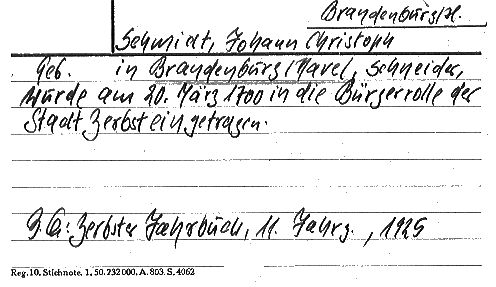 Brandenburg/H.
Schmidt, Johann Christoph
Geb. in Brandenburg/Havel, Schneider,
wurde am 20. März 1700 in die Bürgerrolle der
Stadt Zerbst eingetragen.
Q.: Zerbster Jahrbuch, 11. Jahrg., 1925
Reg. 10. Stichnote. 1, 50. 232000. A. 803. S. 4062